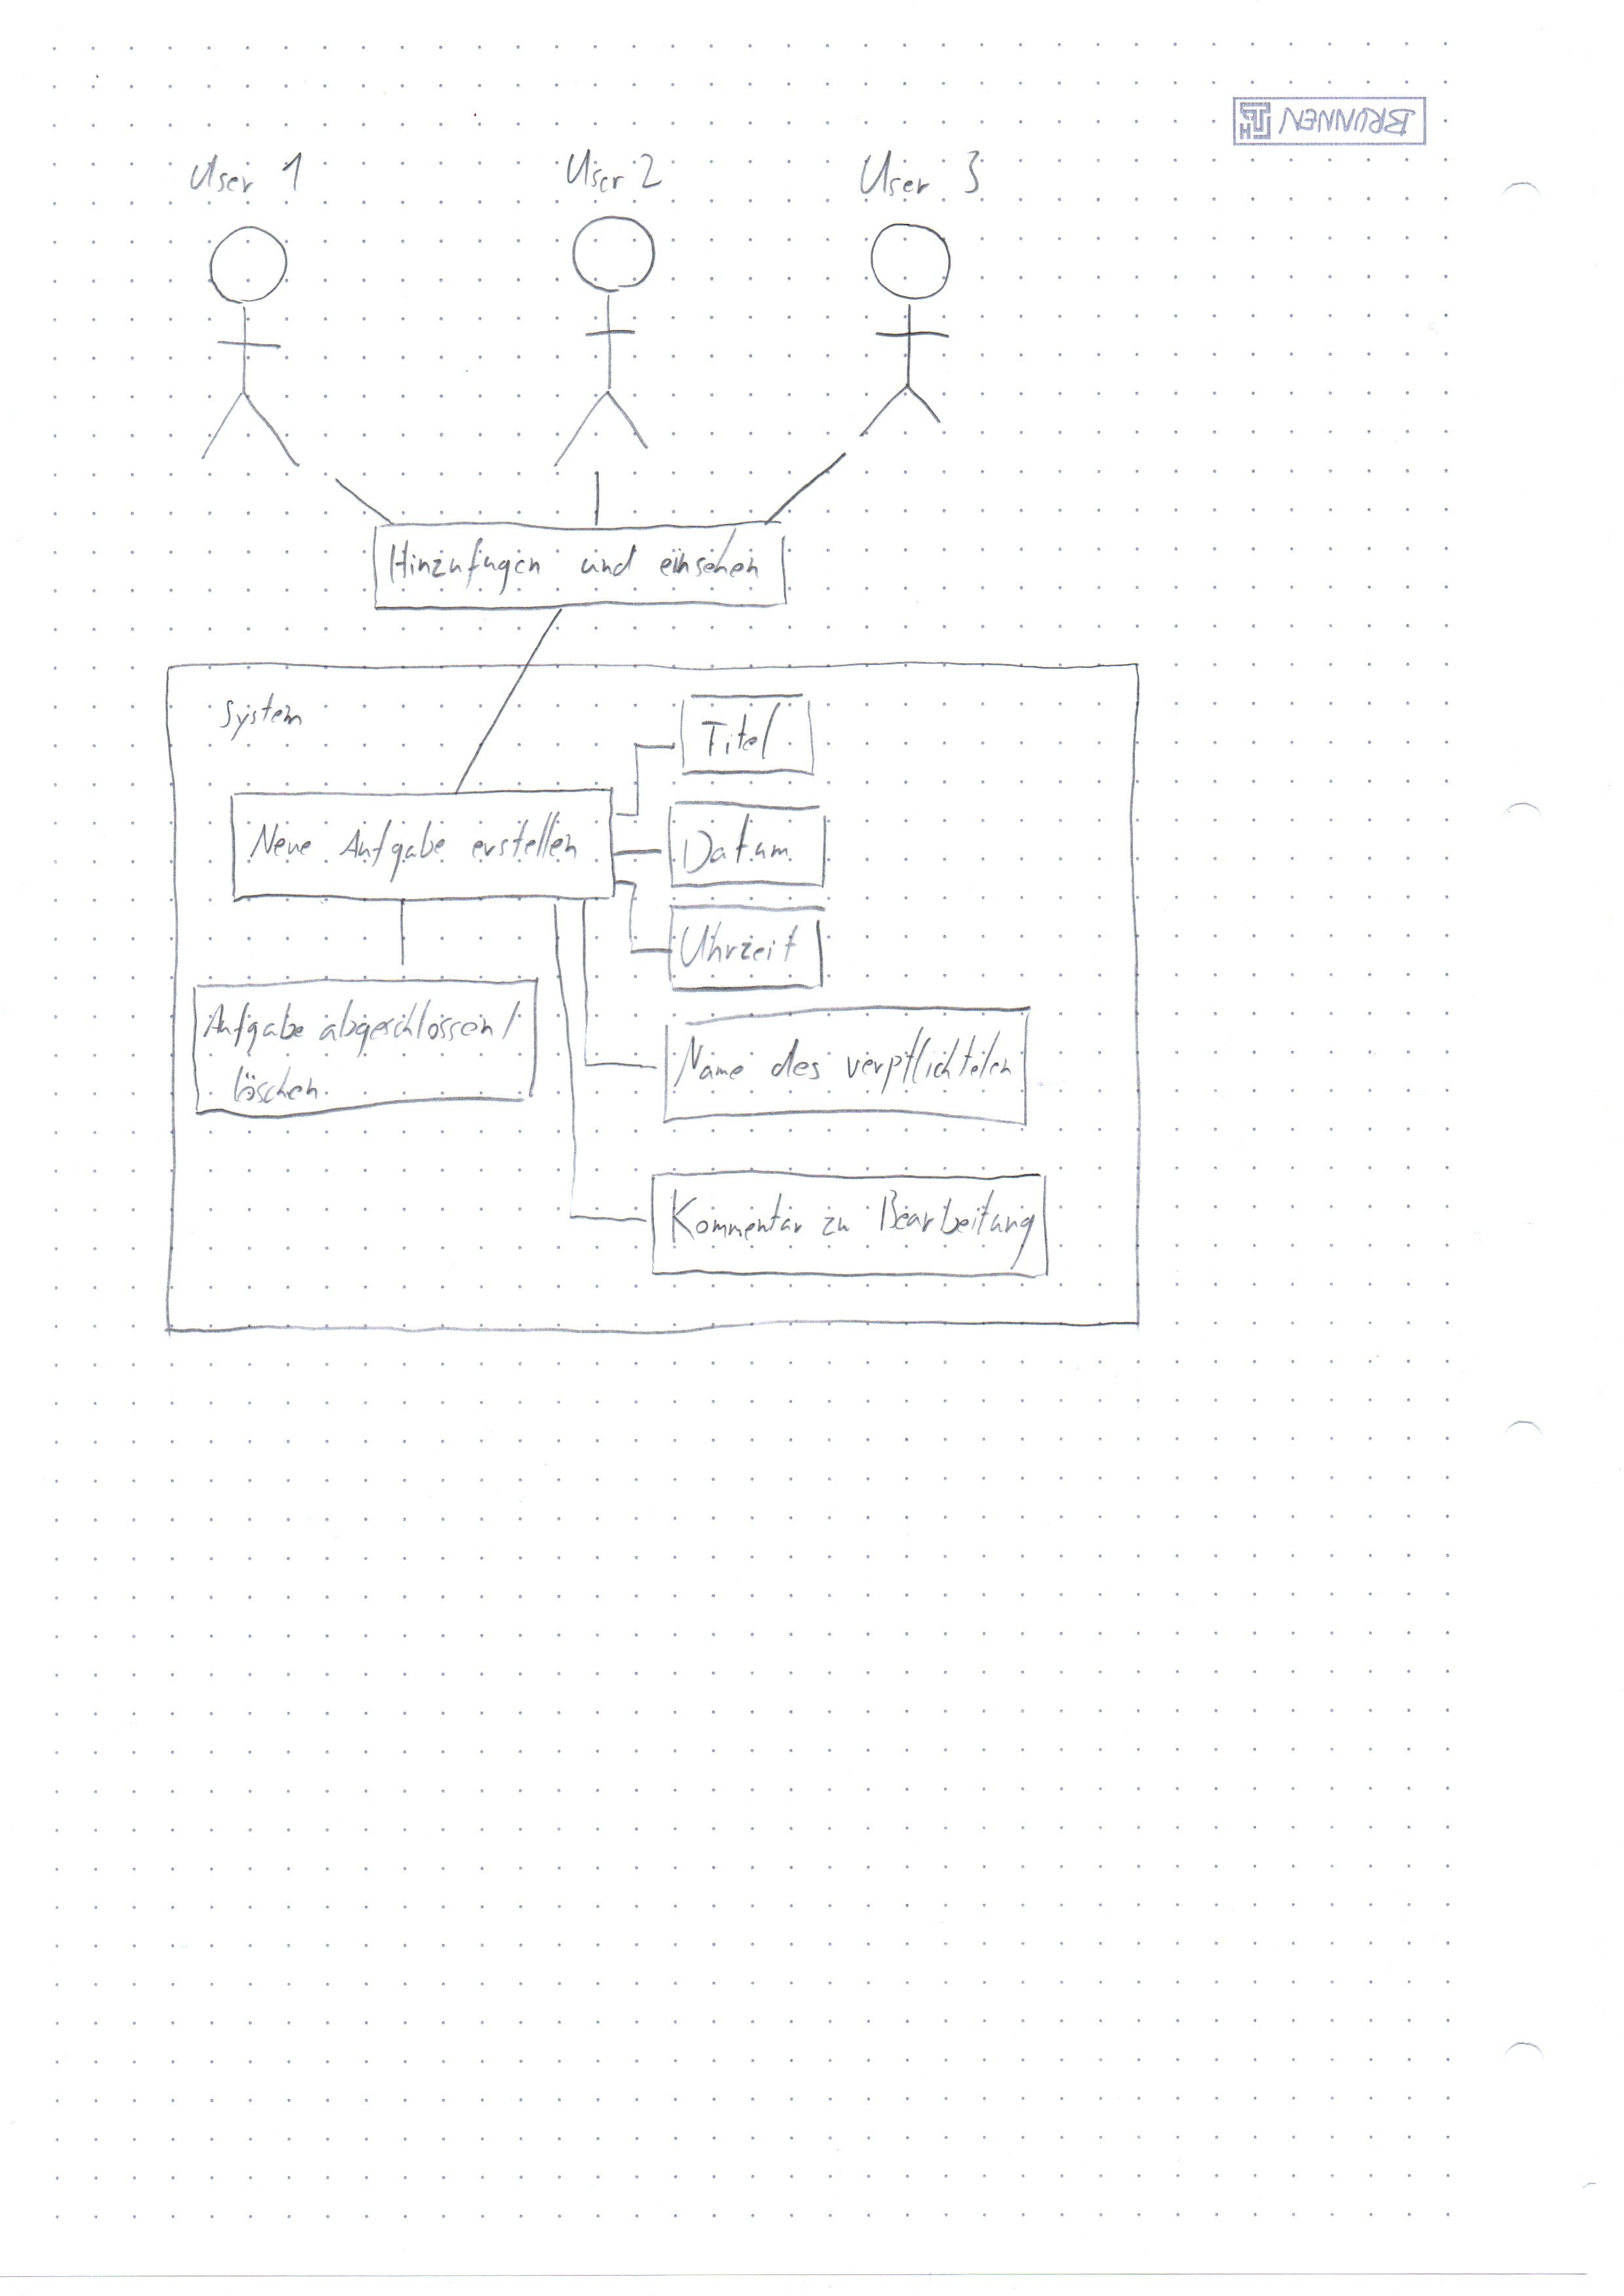 BRUNNEN
User 1
User 2
User 3
Hinzufugen und einsehen
System
Titel
Neue Aufgabe erstellen
Datum
Uhrzeit
Aufgabe abgeschlossen/
löschen
Name des verpflichteten
Kommentar zu Bearbeitung